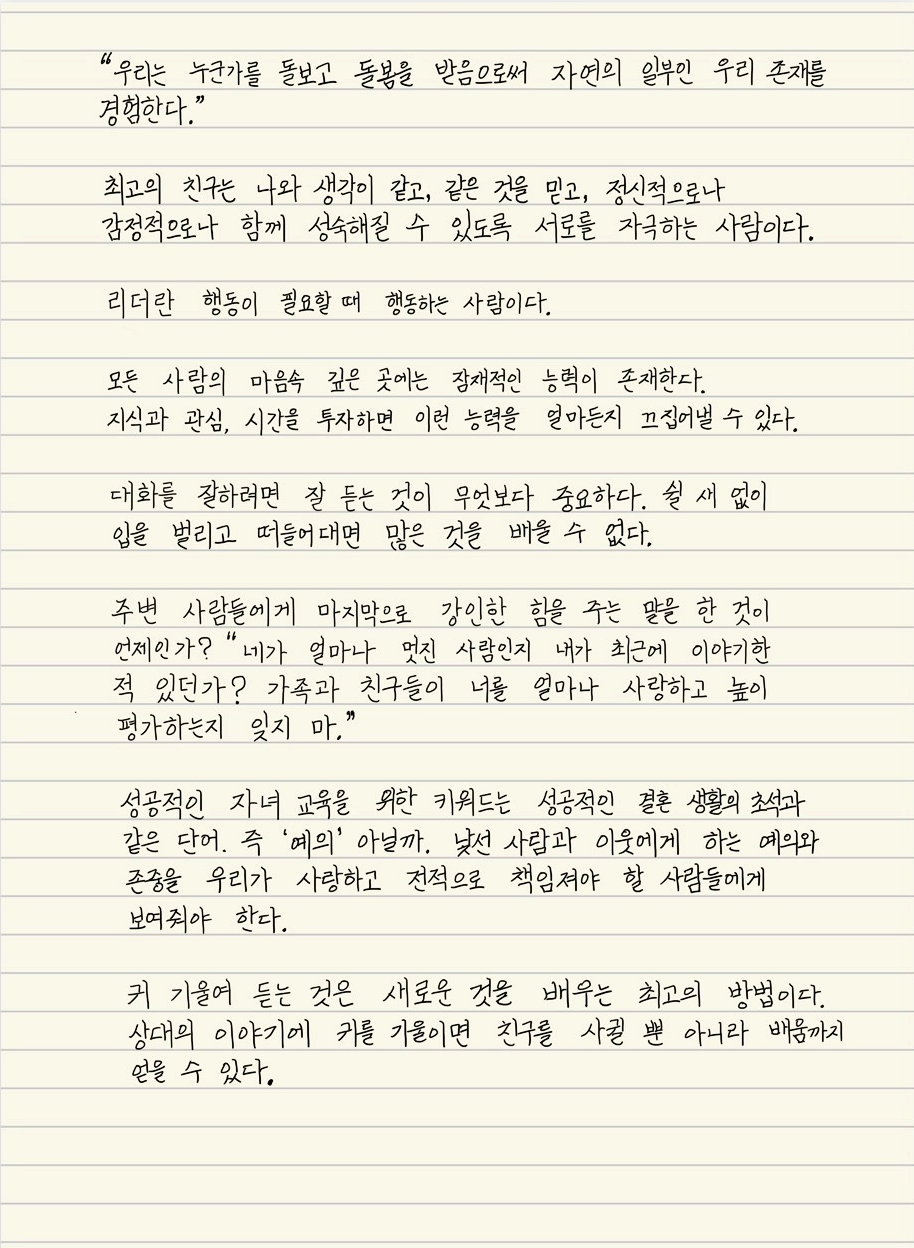 “우리는 누군가를 돌보고 돌봄을 받음으로써 자연의 일부인 우리 존재를
경험한다.”
최고의 친구는 나와 생각이 같고, 같은 것을 믿고, 정신적으로나
감정적으로나 함께 성숙해질 수 있도록 서로를 자극하는 사람이다.
리더란 행동이 필요할 때 행동하는 사람이다.
모든 사람의 마음속 깊은 곳에는 잠재적인 능력이 존재한다.
지식과 관심, 시간을 투자하면 이런 능력을 얼마든지 끄집어낼 수 있다.
대화를 잘하려면 잘 듣는 것이 무엇보다 중요하다. 쉴 새 없이
입을 벌리고 떠들어대면 많은 것을 배울 수 없다.
주변 사람들에게 마지막으로 강인한 힘을 주는 말을 한 것이
언제인가? “네가 얼마나 멋진 사람인지 내가 최근에 이야기한
적 있던가? 가족과 친구들이 너를 얼마나 사랑하고 높이
평가하는지 잊지 마.”
성공적인 자녀 교육을 위한 키워드는 성공적인 결혼 생활의 초석과
같은 단어. 즉 ‘예의’ 아닐까. 낯선 사람과 이웃에게 하는 예의와
존중을 우리가 사랑하고 전적으로 책임져야 할 사람들에게
보여줘야 한다.
귀 기울여 듣는 것은 새로운 것을 배우는 최고의 방법이다.
상대의 이야기에 귀를 기울이면 친구를 사귈 뿐 아니라 배움까지
얻을 수 있다.